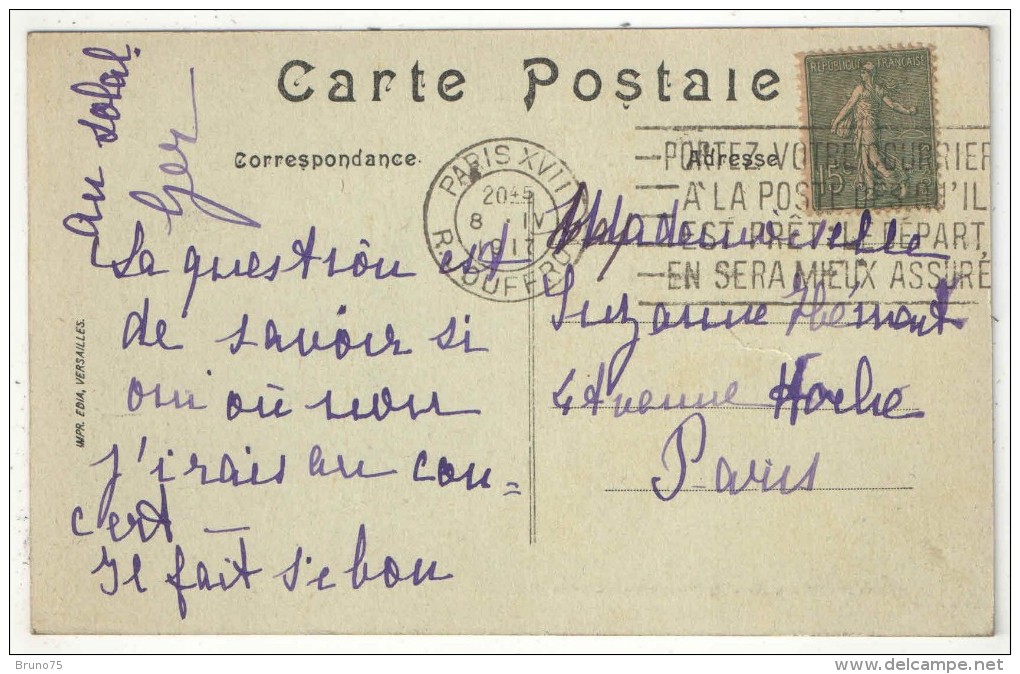 Carte Postale
Correspondance
Adresse
RÉPUBLIQUE FRANÇAISE
15c
PARIS XVII
2045
8 - IV
1917
R.
PORTEZ VOTRE COURRIER
A LA POSTE DÈS QU'IL
EST PRÊT. LE DÉPART
EN SERA MIEUX ASSURÉ
La question est
de savoir si
oui où non
j'irais au con=
cert —
Il fait si bon
au soleil.
Ger
Mademoiselle
Suzanne
4 Avenue Hoche
Paris
IMPR. EDIA, VERSAILLES.
Bruno75
www.delcampe.net